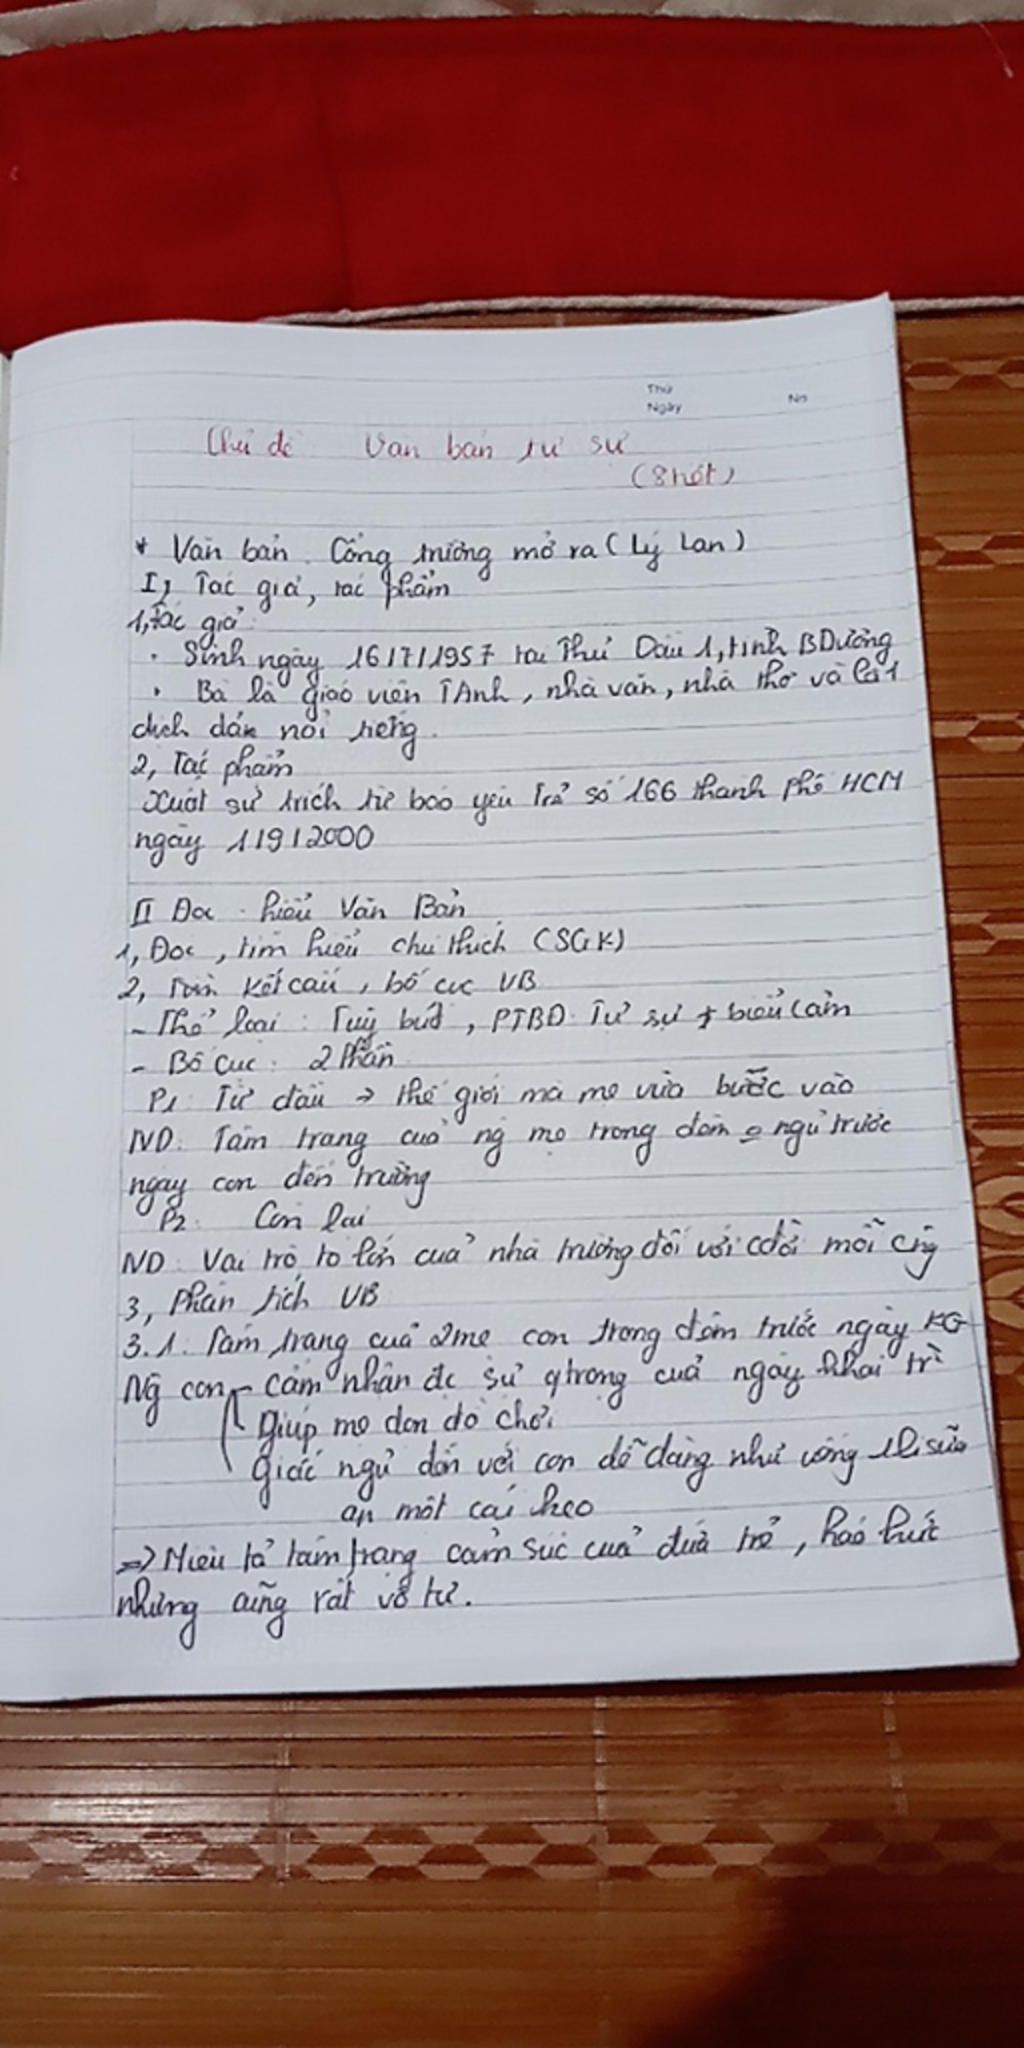 Thứ
Ngày No
Chủ đề Văn bản tự sự
(8 tiết)
* Văn bản. Cổng trường mở ra (Lý Lan)
I, Tác giả, tác phẩm
1, Tác giả:
. Sinh ngày 16/7/1957 tại Thủ Dầu 1, tỉnh BDương
. Bà là giáo viên TAnh, nhà văn, nhà thơ và là 1
dịch nổi tiếng.
2, Tác phẩm
Xuất sứ trích từ báo yêu trẻ số 166 thành phố HCM
ngày 1/9/2000
II Đọc - hiểu Văn Bản
1, Đọc, tìm hiểu chú thích (SGK)
2, Tìm kết cấu, bố cục VB
- Thể loại: Tuỳ bút, PTBĐ: Tự sự + biểu cảm
- Bố cục: 2 Phần
P1: Từ đầu → thế giới mà mẹ vừa bước vào
ND: Tâm trạng của ng mẹ trong đêm ngủ trước
ngày con đến trường
P2: Còn lại
ND: Vai trò to lớn của nhà trường đối với cđời mỗi
3, Phân tích VB
3.1. Tâm trạng của 2mẹ con trong đêm trước ngày KG
Ng con - cảm nhận đc sự qtrọng của ngày khai tr
Giúp mẹ dọn đồ chơi
Giấc ngủ đến với con dễ dàng như uống sữa
ăn một cái kẹo
=> Miêu tả tâm trạng cảm súc của đứa trẻ, háo hức
nhưng cũng rất vô tư.